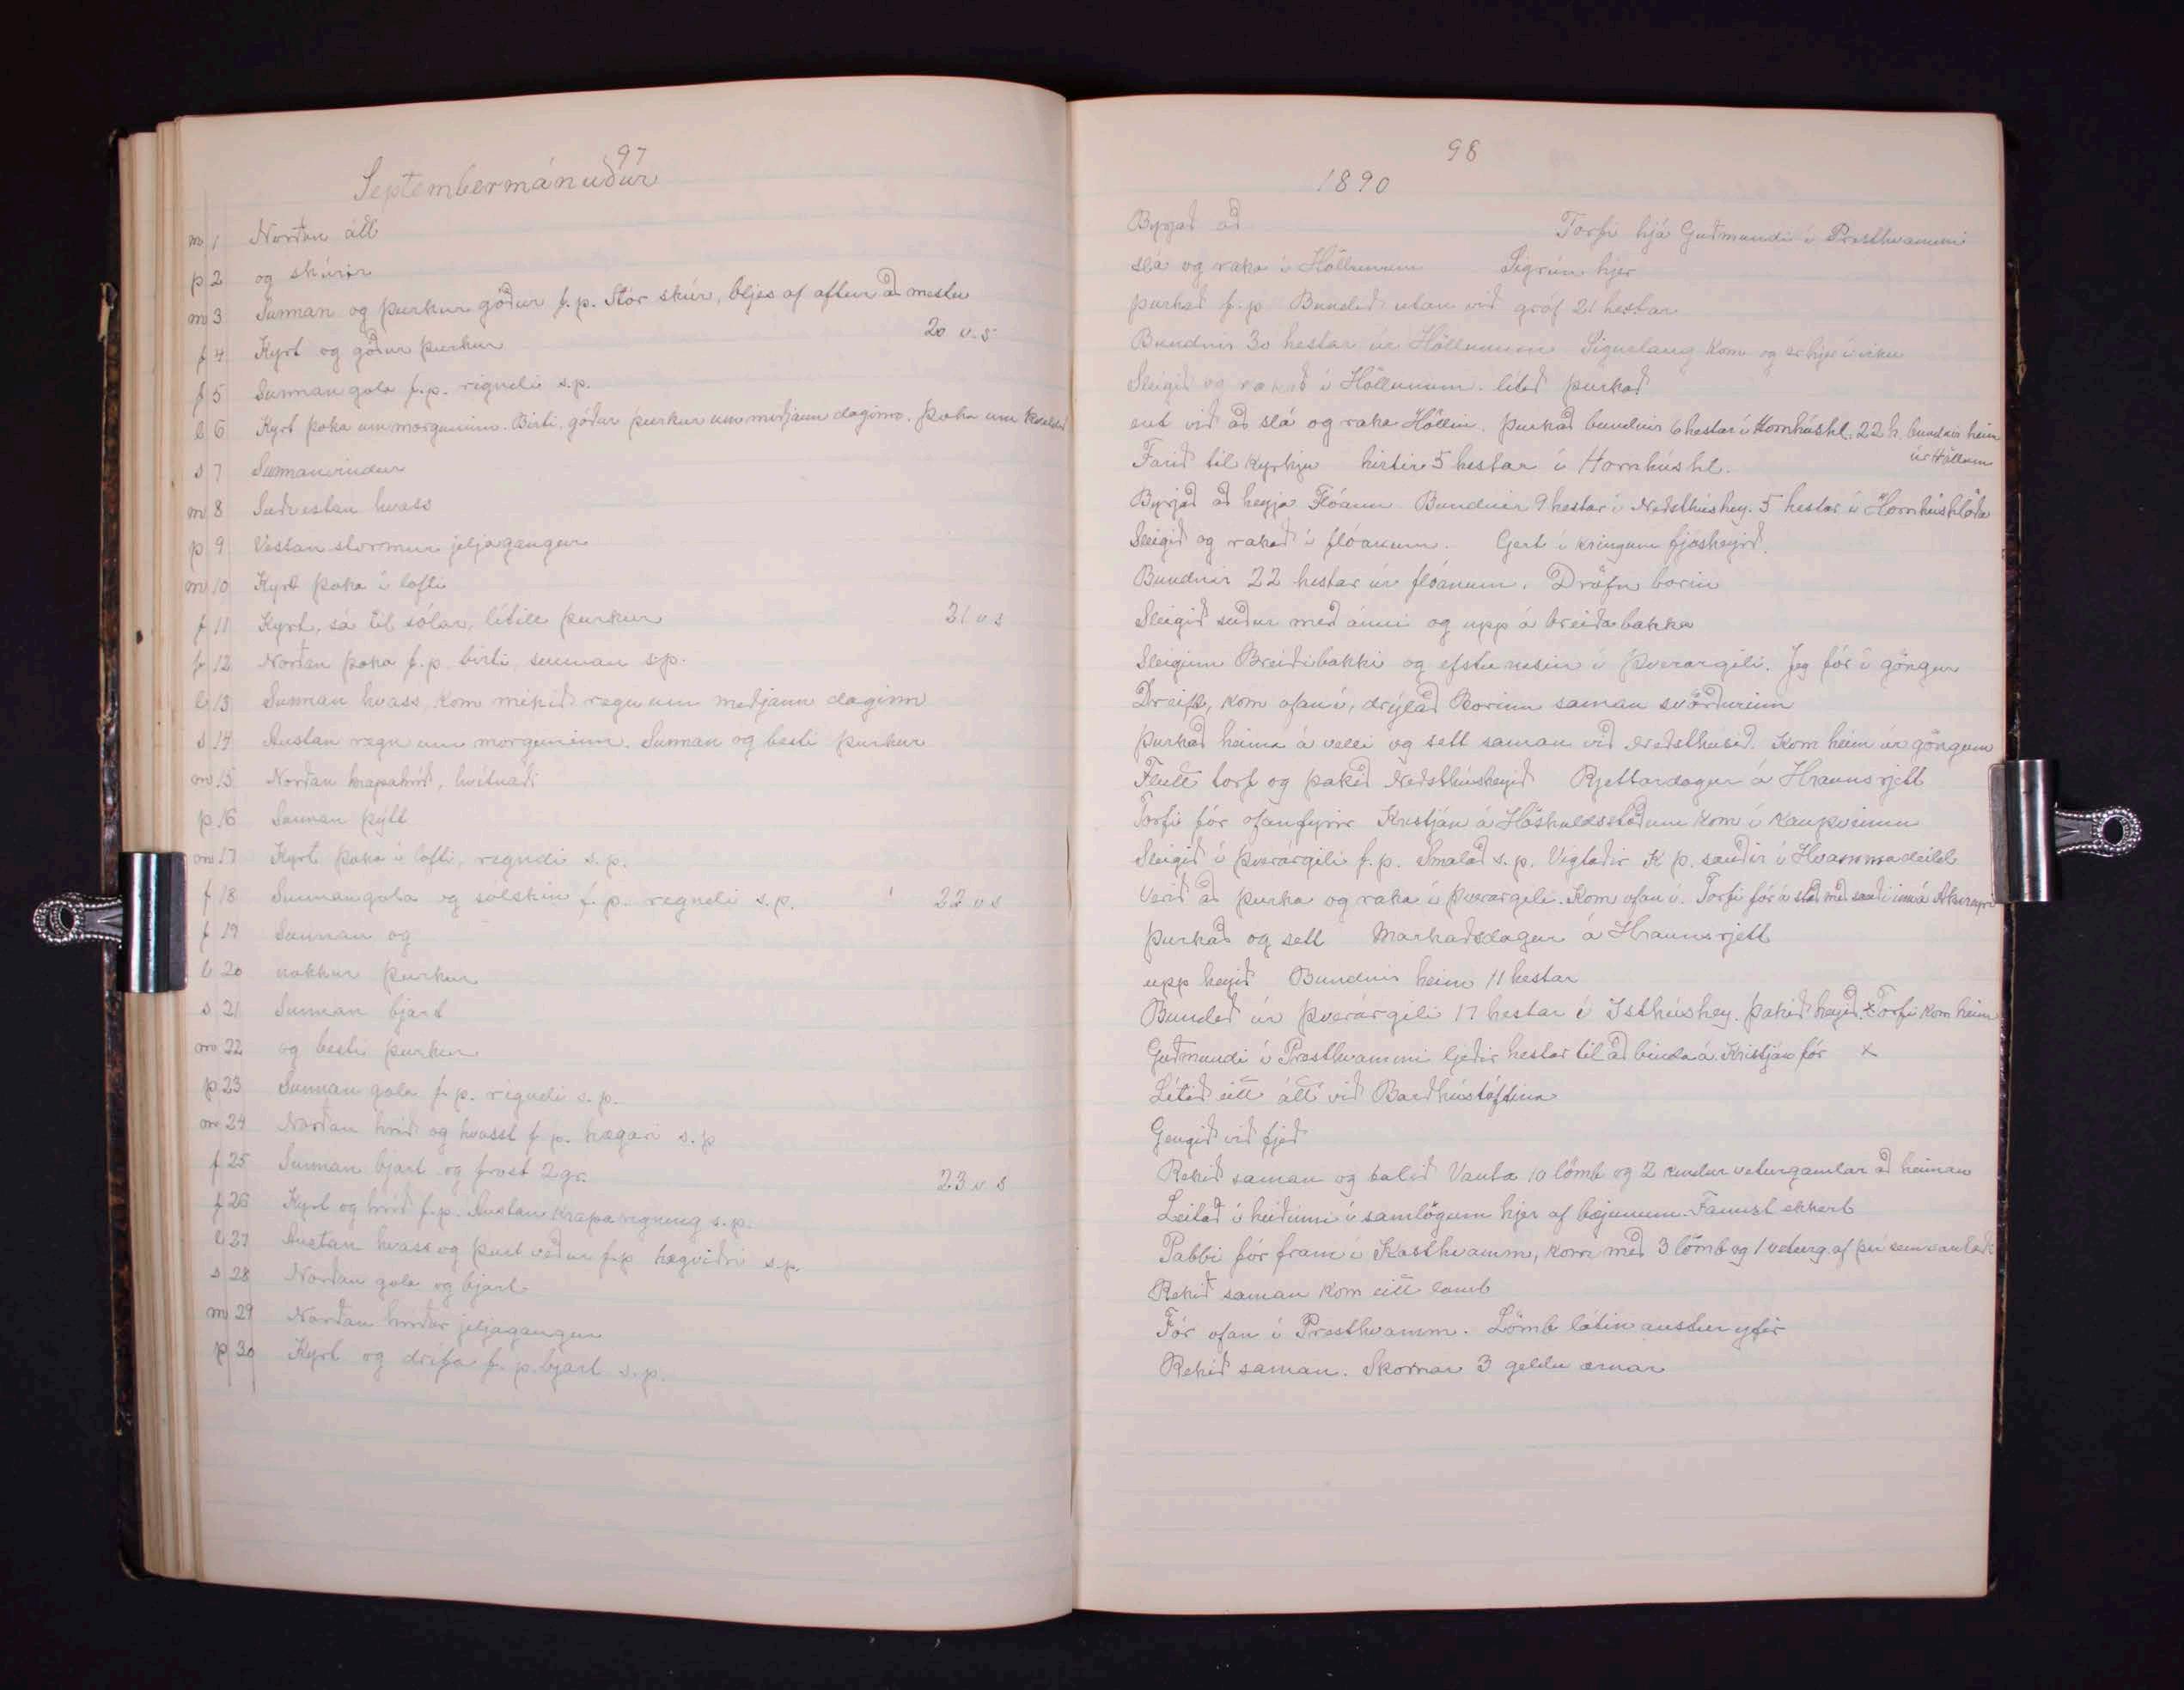 97
Septembermánuður
m 1 Norðan átt
þ 2 og skúrir
m 3 Sunnan og þurkur góður f.p. Stór skúr, bljes af aftur að mestu
f 4 Kyrt og góður þurkur 20 v.s
f 5 Sunnan gola f.p. rigndi s.p.
l 6 Kyrt þoka um morguninn. Birti, góður þurkur um miðjann daginn. þoka um kveldið
s 7 Sunnanvindur
m 8 Suðvestan hvass
þ 9 Vestan stormur jeljagangur
m 10 Kyrt þoka í lofti
f 11 Kyrt, sá til sólar, lítill þurkur 21 v s
f 12 Norðan þoka f.p. birti sunnan s.p.
l 13 Sunnan hvass, kom mikið regn um miðjann daginn
s 14 Austan regn um morguninn. Sunnan og besti þurkur
m 15 Norðan krapahríð, hvítnaði
þ 16 Sunnan þýtt
m 17 Kyrt þoka í lofti, regndi s.p.
f 18 Sunnangola og sólskin f.p. regndi s.p. 22 v s
f 19 Sunnan og
l 20 nokkur þurkur
s 21 Sunnan bjart
m 22 og besti þurkur
þ 23 Sunnan gola f.p. rigndi s.p.
m 24 Norðan hríð og hvasst f.p. hægari s.p
f 25 Sunnan bjart og frost 2 gr. 23 v s
f 26 Kyrt og hríð f.p. Austan krapa regning s.p.
l 27 Austan hvass og þurt veður f.p hægviðri s.p.
s 28 Norðan gola og bjart
m 29 Norðan hríðar jeljagangur
þ 30 Kyrt og drífa f.p. bjart s.p.
98
1890
Byrjað að Torfi hjá Guðmundi í Presthvammi
slá og raka í Höllunum Sigrún hjer
þurkað f.p Bundið utan við gróf 21 hestar
Bundnir 30 hestar úr Höllunum Sigurlaug kom og er hjer í viku
Sleigið og rakað í Höllunum. lítið þurkað
ent við að slá og raka Höllin. þurkað bundnir 6 hestar í Hornhúshl. 22 h. bundnir heim
úr Höllum
Farið til kyrkju hirtir 5 hestar í Hornhúshl.
Byrjað að heyja Flóann Bundnir 9 hestar í Neðsthúshey. 5 hestar í Hornhúshlöðu
Sleigið og rakað í flóanum. Gert í kringum fjósheyið.
Bundnir 22 hestar úr flóanum. Dröfn borin
Sleigið suður með ánni og upp á breiðabakka
Sleiginn Breiðibakki og efstu nesin í Þverárgili. Jeg fór í göngur
Dreift, kom ofan í, drýlað Borinn saman svörðurinn
þurkað heima á velli og sett saman við Neðsthúsið. Kom heim úr göngum
Flutt torf og þakið Neðsthúsheyið Rjettardagur á Hraunsrjett
Torfi fór ofanfyrir Kristján á Höskuldsstöðum kom í kaupvinnu
Sleigið í Þverárgili f.p. Smalað s.p. Vigtaðir K þ. sauðir í Hvammadeild
Verið að þurka og raka í Þverárgili. Kom ofan í. Torfi fór á stað með sauði inná Akureyri
þurkað og sett Markaðsdagur á Hraunsrjett
upp heyið Bundnir heim 11 hestar
Bundið úr Þverárgili 17 hestar í Ysthúshey. þakið heyið. x Torfi kom heim
Guðmundi í Presthvammi ljeðir hestar til að binda á Kristján fór x
Lítið eitt átt við Barðhústóftina
Gengið við fjeð
Rekið saman og talið Vanta 10 lömb og 2 kindur veturgamlar að heiman
Leitað í heiðinni í samlögum hjer af bæjunum. Fannst ekkert
Pabbi fór fram í Kasthvamm, kom með 3 lömb og 1 veturg. af því sem vantaði
Rekið saman kom eitt lamb
Fór ofan í Presthvamm. Lömb látin austur yfir
Rekið saman. Skornar 3 geldu ærnar